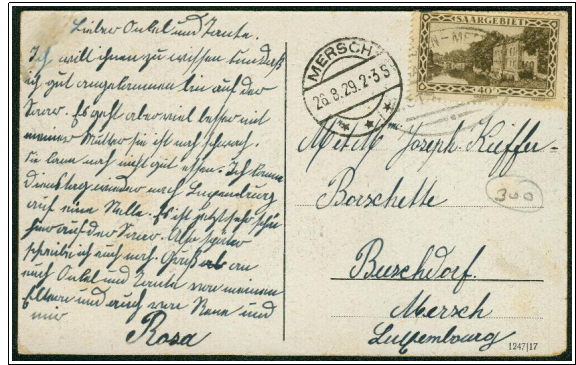 Lieber Onkel und Tante.
Ich will ihnen zu wissen tun daß
ich gut angekommen bin auf der
Saar. Es geht aber viel besser mit
meiner Mutter sie ist noch schwach.
Sie kann noch nicht gut essen. Ich komme
Dienstag wieder nach Luxemburg
auf eine Stelle. Es ist jetzt sehr schön
hier auf der Saar. Also später
schreibe ich euch noch. Gruß an
euch Onkel und Tante von meinen
Eltern und auch von Rene und
mir
Rosa
SAARGEBIET
40
MERSCH
26.8.29.2-3S
Joseph Kieffer-
Borschette
Buschdorf.
Mersch
Luxembourg
300
1247|17